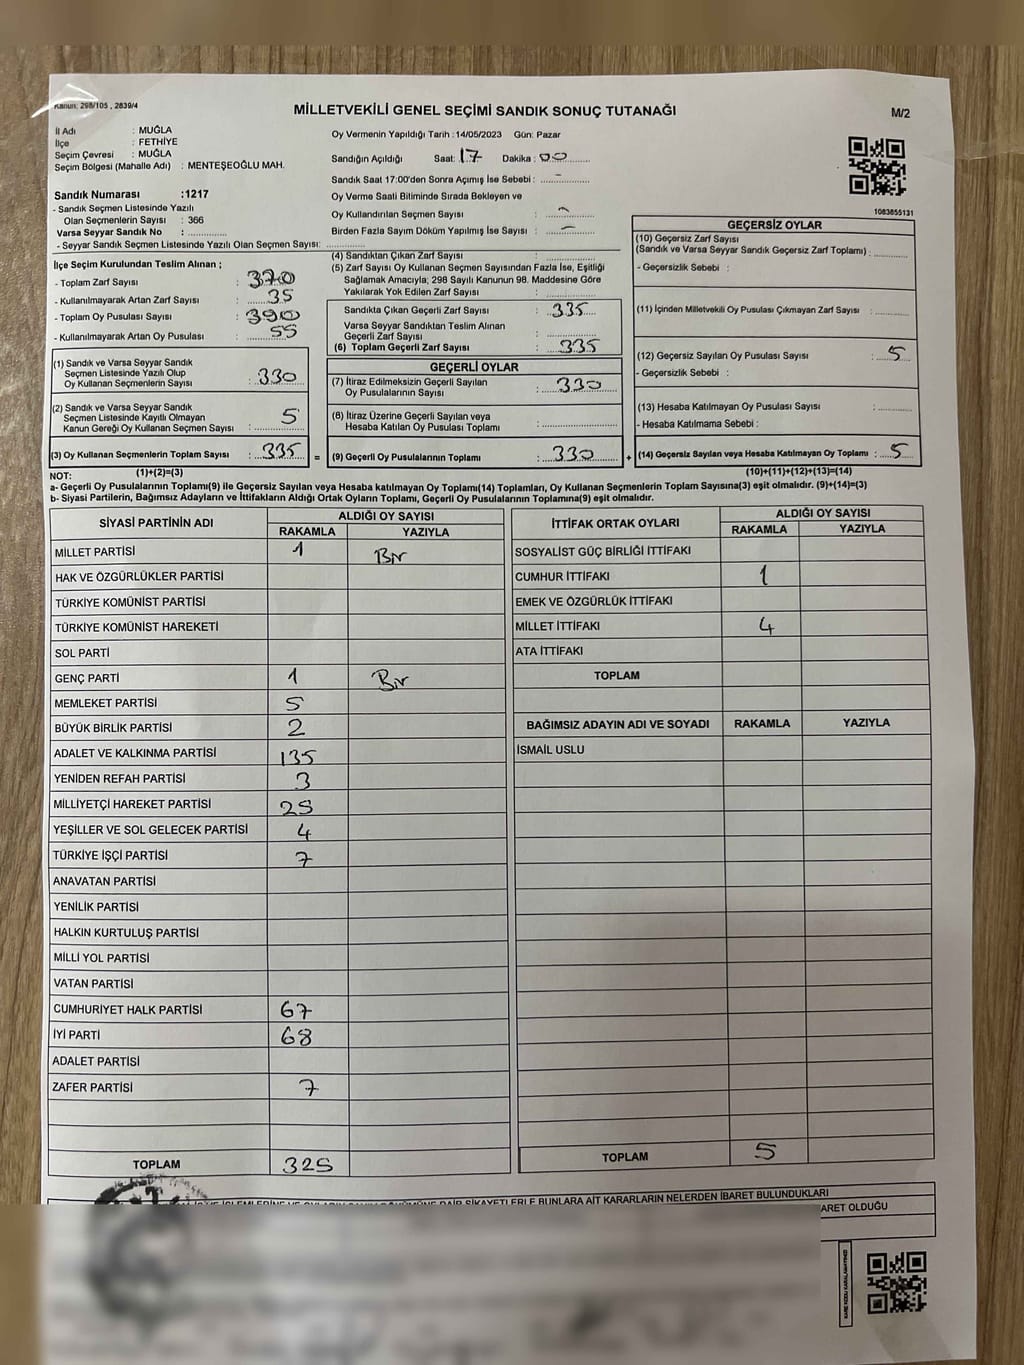 Kanun: 298/105 , 2839/4
MİLLETVEKİLİ GENEL SEÇİMİ SANDIK SONUÇ TUTANAĞI
M/2
İl Adı : MUĞLA
İlçe : FETHİYE
Seçim Çevresi : MUĞLA
Seçim Bölgesi (Mahalle Adı) : MENTEŞEOĞLU MAH.
Sandık Numarası :1217
- Sandık Seçmen Listesinde Yazılı
Olan Seçmenlerin Sayısı : 366
Varsa Seyyar Sandık No :
- Seyyar Sandık Seçmen Listesinde Yazılı Olan Seçmen Sayısı:
Oy Vermenin Yapıldığı Tarih :14/05/2023 Gün: Pazar
Sandığın Açıldığı Saat: 17 Dakika : 00
Sandık Saat 17:00'den Sonra Açımış İse Sebebi : -
Oy Verme Saati Bitiminde Sırada Bekleyen ve
Oy Kullandırılan Seçmen Sayısı : -
Birden Fazla Sayım Döküm Yapılmış İse Sayısı : -
1083855131
İlçe Seçim Kurulundan Teslim Alınan ;
- Toplam Zarf Sayısı : 370
- Kullanılmayarak Artan Zarf Sayısı : 35
- Toplam Oy Pusulası Sayısı : 390
- Kullanılmayarak Artan Oy Pusulası : 55
(1) Sandık ve Varsa Seyyar Sandık
Seçmen Listesinde Yazılı Olup
Oy Kullanan Seçmenlerin Sayısı : 330
(2) Sandık ve Varsa Seyyar Sandık
Seçmen Listesinde Kayıtlı Olmayan
Kanun Gereği Oy Kullanan Seçmen Sayısı : 5
(3) Oy Kullanan Seçmenlerin Toplam Sayısı : 335
(4) Sandıktan Çıkan Zarf Sayısı :
(5) Zarf Sayısı Oy Kullanan Seçmen Sayısından Fazla İse, Eşitliği
Sağlamak Amacıyla; 298 Sayılı Kanunun 98. Maddesine Göre
Yakılarak Yok Edilen Zarf Sayısı :
Sandıkta Çıkan Geçerli Zarf Sayısı : 335
Varsa Seyyar Sandıktan Teslim Alınan
Geçerli Zarf Sayısı :
(6) Toplam Geçerli Zarf Sayısı : 335
GEÇERLİ OYLAR
(7) İtiraz Edilmeksizin Geçerli Sayılan
Oy Pusulasının Sayısı : 330
(8) İtiraz Üzerine Geçerli Sayılan veya
Hesaba Katılan Oy Pusulası Toplamı :
= (9) Geçerli Oy Pusulalarının Toplamı : 330
GEÇERSİZ OYLAR
(10) Geçersiz Zarf Sayısı
(Sandık ve Varsa Seyyar Sandık Geçersiz Zarf Toplamı) :
- Geçersizlik Sebebi :
(11) İçinden Milletvekili Oy Pusulası Çıkmayan Zarf Sayısı :
(12) Geçersiz Sayılan Oy Pusulası Sayısı : 5
- Geçersizlik Sebebi :
(13) Hesaba Katılmayan Oy Pusulası Sayısı :
- Hesaba Katılmama Sebebi :
+ (14) Geçersiz Sayılan veya Hesaba Katılmayan Oy Toplamı : 5
NOT: (1)+(2)=(3) (10)+(11)+(12)+(13)=(14)
a- Geçerli Oy Pusulasının Toplamı(9) ile Geçersiz Sayılan veya Hesaba katılmayan Oy Toplamı(14) Toplamları, Oy Kullanan Seçmenlerin Toplam Sayısına(3) eşit olmalıdır. (9)+(14)=(3)
b- Siyasi Partilerin, Bağımsız Adayların ve İttifakların Aldığı Ortak Oyların Toplamı, Geçerli Oy Pusulalarının Toplamına(9) eşit olmalıdır.
SİYASİ PARTİNİN ADI ALDIĞI OY SAYISI
RAKAMLA YAZIYLA
MİLLET PARTİSİ 1 Bir
HAK VE ÖZGÜRLÜKLER PARTİSİ
TÜRKİYE KOMÜNİST PARTİSİ
TÜRKİYE KOMÜNİST HAREKETİ
SOL PARTİ
GENÇ PARTİ 1 Bir
MEMLEKET PARTİSİ 5
BÜYÜK BİRLİK PARTİSİ 2
ADALET VE KALKINMA PARTİSİ 135
YENİDEN REFAH PARTİSİ 3
MİLLİYETÇİ HAREKET PARTİSİ 25
YEŞİLLER VE SOL GELECEK PARTİSİ 4
TÜRKİYE İŞÇİ PARTİSİ 7
ANAVATAN PARTİSİ
YENİLİK PARTİSİ
HALKIN KURTULUŞ PARTİSİ
MİLLİ YOL PARTİSİ
VATAN PARTİSİ
CUMHURİYET HALK PARTİSİ 67
İYİ PARTİ 68
ADALET PARTİSİ
ZAFER PARTİSİ 7
TOPLAM 325
İTTİFAK ORTAK OYLARI ALDIĞI OY SAYISI
RAKAMLA YAZIYLA
SOSYALİST GÜÇ BİRLİĞİ İTTİFAKI
CUMHUR İTTİFAKI 1
EMEK VE ÖZGÜRLÜK İTTİFAKI
MİLLET İTTİFAKI 4
ATA İTTİFAKI
TOPLAM
BAĞIMSIZ ADAYIN ADI VE SOYADI RAKAMLA YAZIYLA
İSMAİL USLU
TOPLAM 5
İŞLEMLERİNE VE OYLARIN SAYIM DÖKÜMÜNE DAİR ŞİKAYETLERLE BUNLARA AİT KARARLARIN NELERDEN İBARET BULUNDUKLARI
ARET OLDUĞU
KARE KODU KARALAMAYINIZ